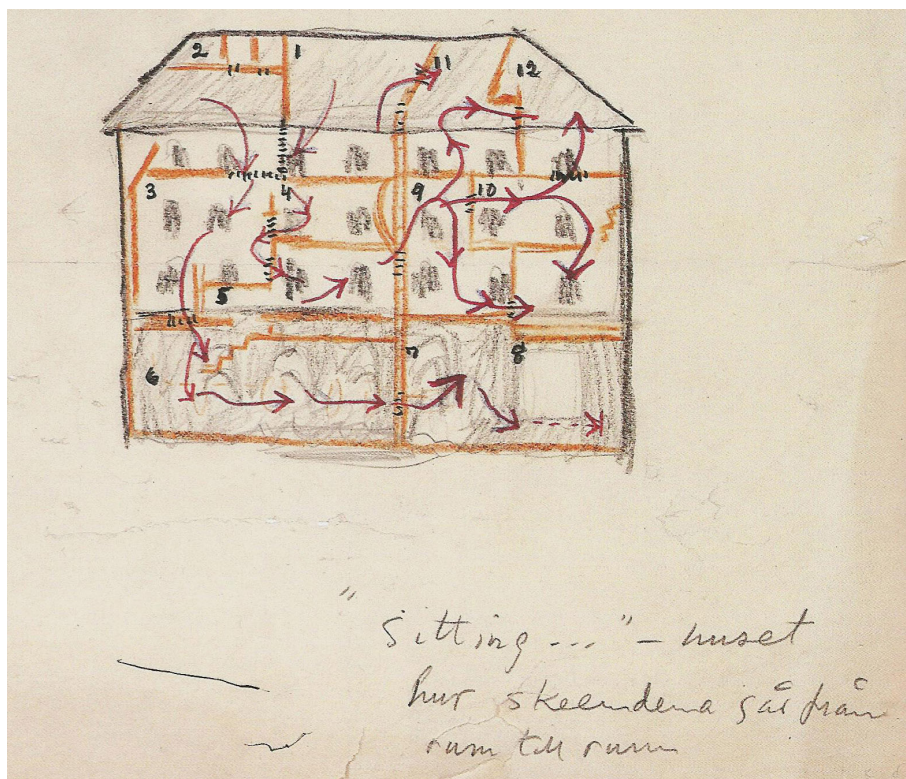 2 1
11
12
3 4 9 10
5
6 7 8
"Sitting..." – huset
hur skeendena går från
rum till rum